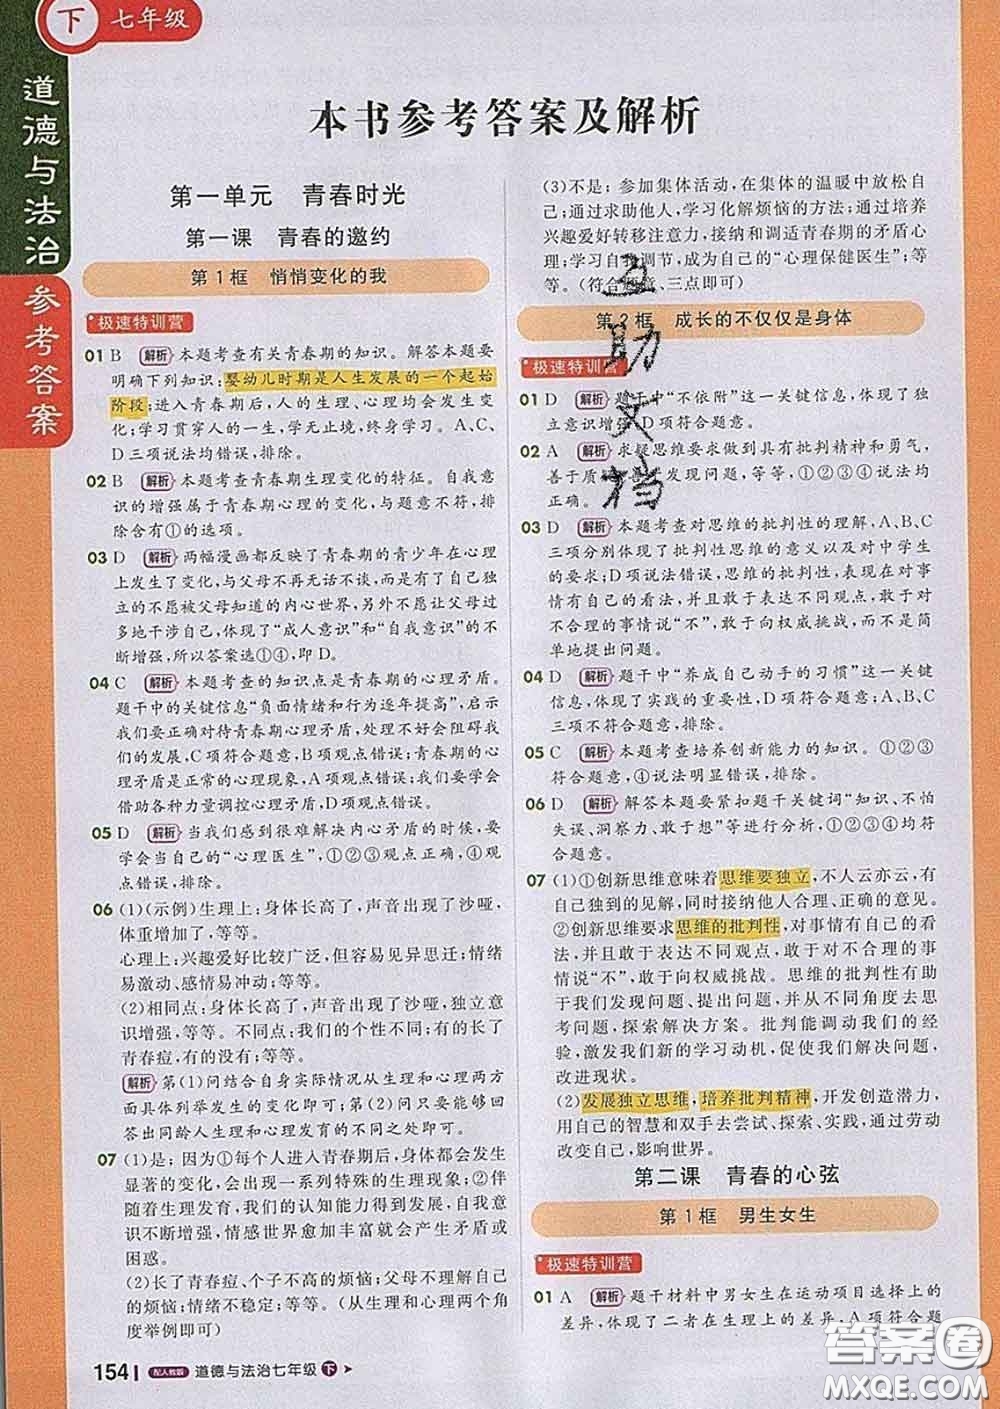 下 七年级
道德与法治
参考答案
本书参考答案及解析
第一单元 青春时光
第一课 青春的邀约
第1框 悄悄变化的我
极速特训营
01 B 解析 本题考查有关青春期的知识。解答本题要
明确下列知识:婴幼儿时期是人生发展的一个起始
阶段;进入青春期后,人的生理、心理均会发生变
化;学习贯穿人的一生,学无止境,终身学习。A、C、
D三项说法均错误,排除。
02 B 解析 本题考查青春期生理变化的特征。自我意
识的增强属于青春期心理的变化,与题意不符,排
除含有①的选项。
03 D 解析 两幅漫画都反映了青春期的青少年在心理
上发生了变化,与父母不再无话不谈,有了自己独
立的不愿被父母知道的内心世界,另外不希望父母
过多地干涉自己,体现了“成人意识”和“自我意识”的
不断增强,所以答案选①④,即D。
04 C 解析 本题考查的知识点是青春期的心理矛盾。
题干中的关键信息“负面情绪和行为逐年提高”,启示
我们要正确对待青春期心理矛盾,处理不好会阻碍我
们的发展,C项符合题意,B项观点错误;青春期的心
理矛盾是正常的心理现象,A项观点错误;我们要学会
借助各种力量调控心理矛盾,D项观点错误。
05 D 解析 当我们感到很难解决内心矛盾的时候,要
学会当自己的“心理医生”,①②③观点正确,④观
点错误,排除。
06 (1)(示例)生理上:身体长高了,声音出现了沙哑,
体重增加了,等等。
心理上:兴趣爱好比较广泛,但容易见异思迁;情绪
易激动、情感易冲动,等等。
(2)相同点:身体长高了,声音出现了沙哑,独立意
识增强,等等。不同点:我们的个性不同;有的长了
青春痘,有的没有;等等。
解析 第(1)问结合自身实际情况从生理和心理两方
面具体列举发生的变化即可;第(2)问只要能够回
答出同龄人生理和心理发育的不同之处即可。
07 (1)是;因为①每个人进入青春期后,身体都会发生
显著的变化,会出现一系列特殊的生理现象;②伴
随着生理发育,我们的认知能力得到发展,自我意
识不断增强,情感世界愈加丰富就会产生矛盾或
困惑。
(2)长了青春痘、个子不高的烦恼;父母不理解自己
的烦恼;情绪不稳定;等等。(从生理和心理两个角
度举例即可)
(3)不是;参加集体活动,在集体的温暖中放松自
己;通过求助他人,学习化解烦恼的方法;通过培养
兴趣爱好转移注意力,接纳和调适青春期的矛盾心
理;学习自我调节,成为自己的“心理保健医生”;等
等。(符合题意、三点即可)
第2框 成长的不仅仅是身体
极速特训营
01 D 解析 题干中“不依附”这一关键信息,体现了独
立意识增强,D项符合题意。
02 A 解析 求疑思维要求做到具有批判精神和勇气,
善于质疑、发现问题,等等,①②③④说法均
正确。
03 D 解析 本题考查对思维的批判性的理解,A、B、C
三项分别体现了批判性思维的意义以及对中学生
的要求;D项说法错误,思维的批判性,表现在对事
情有自己的看法,并且敢于表达不同观点,敢于对
不合理的事情说“不”,敢于向权威挑战,而不是简
单地提出问题。
04 D 解析 题干中“养成自己动手的习惯”这一关键信
息,体现了实践的重要性,D项符合题意;A、B、C
三项不符合题意,排除。
05 C 解析 本题考查培养创新能力的知识。①②③
符合题意,④说法错误,排除。
06 D 解析 解答本题要紧扣题干关键词“知识、不怕
失误、洞察力、敢于想”等进行分析,①②③④均符
合题意。
07 (1)①创新思维意味着思维要独立,不人云亦云,有
自己独到的见解,同时接纳他人合理、正确的意见。
②创新思维要求思维的批判性,对事情有自己的看
法,并且敢于表达不同观点,敢于对不合理的事
情说“不”,敢于向权威挑战。思维的批判性有助
于我们发现问题、提出问题,并从不同角度去思
考问题,探索解决方案。批判能调动我们的经
验,激发我们新的学习动机,促使我们解决问题,
改进现状。
(2)发展独立思维,培养批判精神,开发创造潜力,
用自己的智慧和双手去尝试、探索、实践,通过劳动
改变自己,影响世界。
第二课 青春的心弦
第1框 男生女生
极速特训营
01 A 解析 题干材料中男女生在运动项目选择上的
差异,体现了二者在生理上的差异,A项符合题
互助文档
154 配人教版 道德与法治七年级 下
答案圈
MXQE.COM